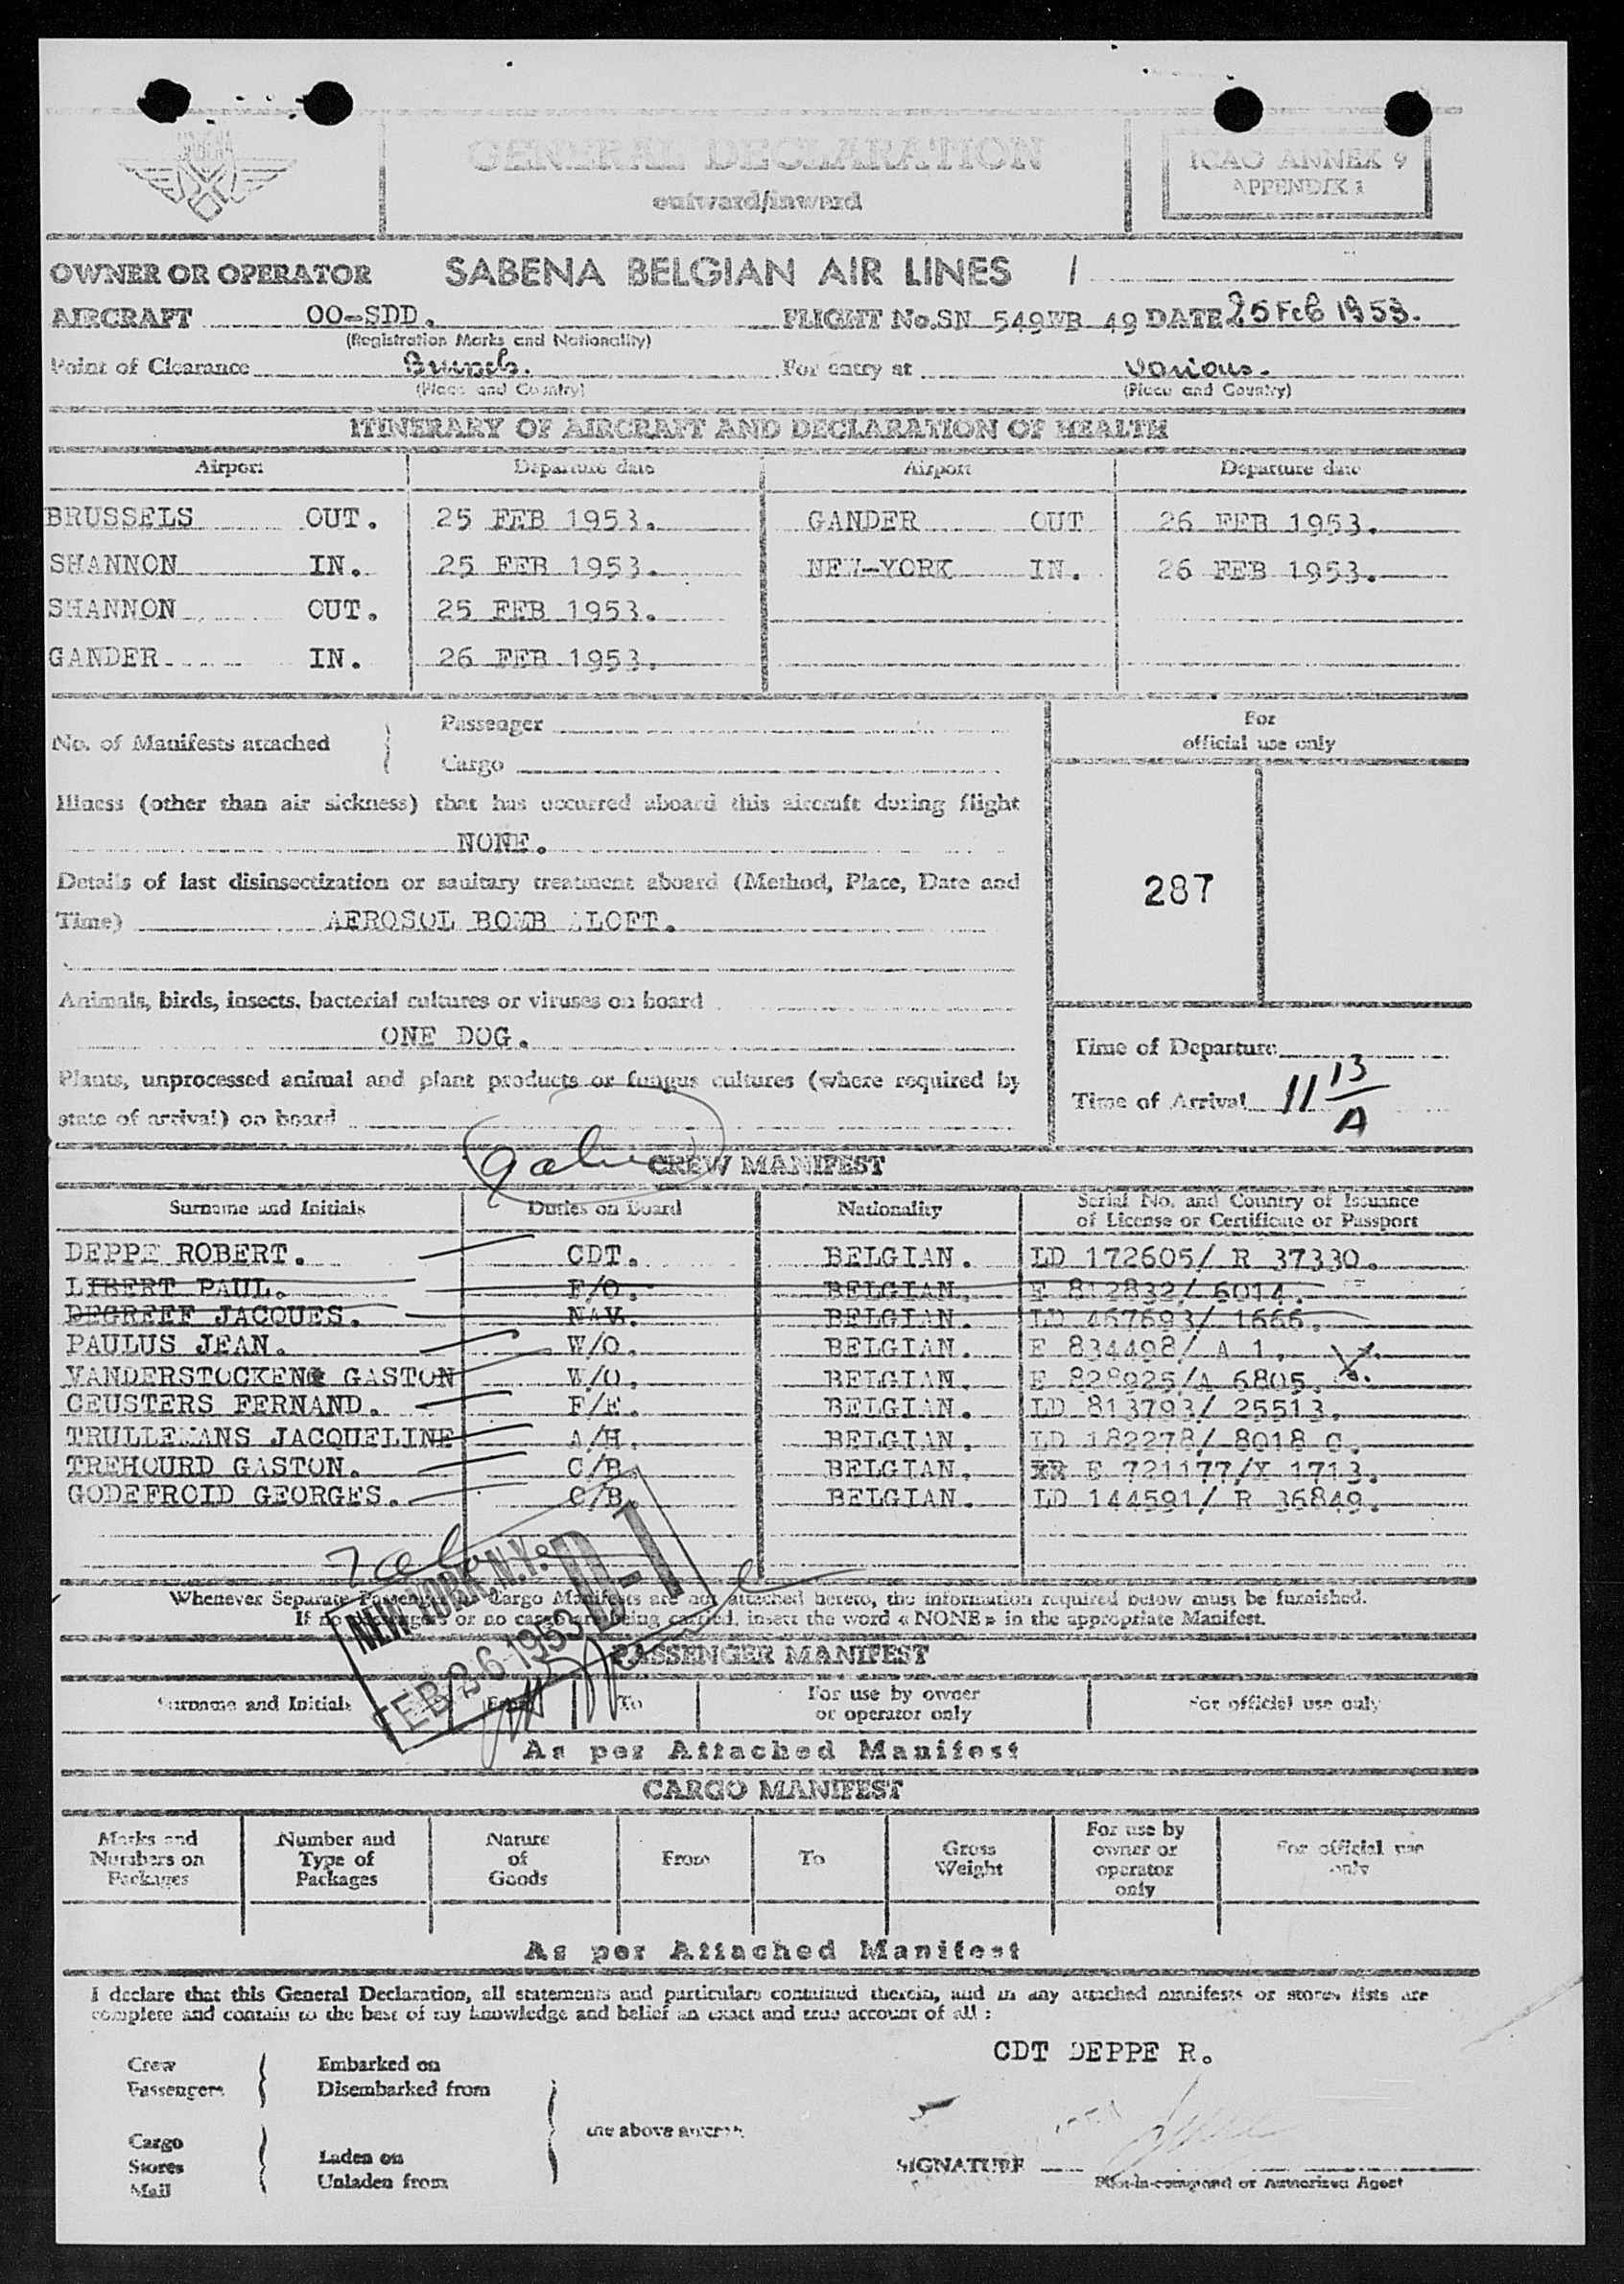 GENERAL DECLARATION
outward/inward
ICAO ANNEX 9
APPENDIX 1
OWNER OR OPERATOR SABENA BELGIAN AIR LINES /
AIRCRAFT OO-SDD. FLIGHT No. SN 549WB 49 DATE 25 Feb 1953.
(Registration Marks and Nationality)
Point of Clearance Brussels. For entry at Various.
(Place and Country) (Place and Country)
ITINERARY OF AIRCRAFT AND DECLARATION OF HEALTH
Airport Departure date Airport Departure date
BRUSSELS OUT. 25 FEB 1953. GANDER OUT 26 FEB 1953.
SHANNON IN. 25 FEB 1953. NEW-YORK IN. 26 FEB 1953.
SHANNON OUT. 25 FEB 1953.
GANDER IN. 26 FEB 1953.
No. of Manifests attached { Passenger
Cargo
For
official use only
Illness (other than air sickness) that has occurred aboard this aircraft during flight
NONE.
Details of last disinsectization or sanitary treatment aboard (Method, Place, Date and
Time) AEROSOL BOMB ALOFT.
287
Animals, birds, insects, bacterial cultures or viruses on board
ONE DOG.
Plants, unprocessed animal and plant products or fungus cultures (where required by
state of arrival) on board
Time of Departure
Time of Arrival 11 13/A
CREW MANIFEST
Surname and Initials Duties on Board Nationality Serial No. and Country of Issuance
of License or Certificate or Passport
DEPPE ROBERT. CDT. BELGIAN. LD 172605/ R 37330.
LIBERT PAUL. F/O. BELGIAN. E 812832/ 6014.
DEGREEF JACQUES. NAV. BELGIAN. LD 467693/ 1666.
PAULUS JEAN. W/O. BELGIAN. E 834498/ A 1.
VANDERSTOCKEN GASTON W/O. BELGIAN. E 828925/A 6805.
CEUSTERS FERNAND. F/E. BELGIAN. LD 813793/ 25513.
TRULLEMANS JACQUELINE A/H. BELGIAN. LD 182278/ 8018 C.
TREHOURD GASTON. C/B. BELGIAN. E 721177/X 1713.
GODEFROID GEORGES. C/B. BELGIAN. LD 144591/ R 36849.
NEW YORK, N.Y. D-1
FEB 26 1953
Whenever Separate Passenger or Cargo Manifests are not attached hereto, the information required below must be furnished.
If no passengers or no cargo are being carried, insert the word « NONE » in the appropriate Manifest.
PASSENGER MANIFEST
Surname and Initials From To For use by owner
or operator only For official use only
As per Attached Manifest
CARGO MANIFEST
Marks and
Numbers on
Packages
Number and
Type of
Packages
Nature
of
Goods
From
To
Gross
Weight
For use by
owner or
operator
only
For official use
only
As per Attached Manifest
I declare that this General Declaration, all statements and particulars contained therein, and in any attached manifests or stores lists are
complete and contain to the best of my knowledge and belief an exact and true account of all :
CDT DEPPE R.
Crew
Passengers
Embarked on
Disembarked from
Cargo
Stores
Mail
Laden on
Unladen from
the above aircraft
SIGNATURE
Pilot-in-command or Authorized Agent